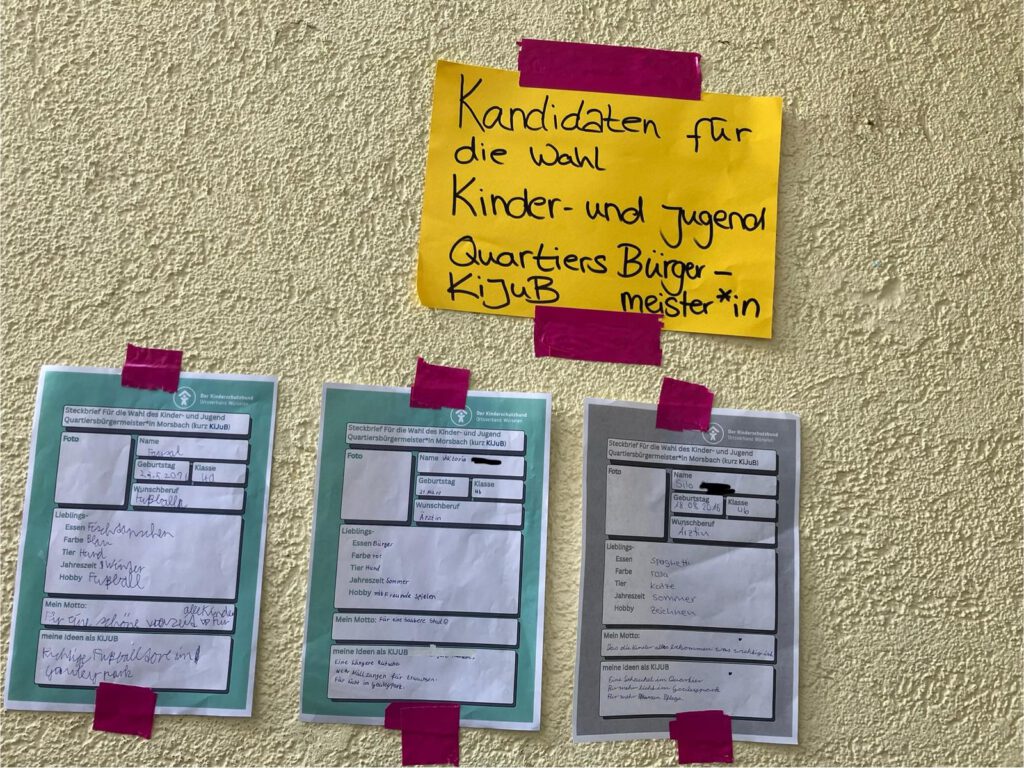 Kandidaten für
die Wahl
Kinder- und Jugend
Quartiers Bürger-
KiJuB meister*in
Der Kinderschutzbund
Ortsverband Würselen
Steckbrief Für die Wahl des Kinder- und Jugend
Quartiersbürgermeister*in Morsbach (kurz KiJuB)
Foto
Name
Geburtstag
Klasse
Wunschberuf
Lieblings-
Essen
Farbe Blau
Tier Hund
Jahreszeit Winter
Hobby Fußball
Mein Motto:
alle Kinder
Für eine schöne für
meine Ideen als KiJUB
Richtige Fußballtore im
park
Der Kinderschutzbund
Ortsverband Würselen
Steckbrief Für die Wahl des Kinder- und Jugend
Quartiersbürgermeister*in Morsbach (kurz KiJuB)
Foto
Name Viktoria
Geburtstag
Klasse
4b
Wunschberuf
Ärztin
Lieblings-
Essen Bürger
Farbe rot
Tier Hund
Jahreszeit Sommer
Hobby mit Freunde spielen
Mein Motto: Für eine saubere
meine Ideen als KiJUB
Eine längere Rutsche
Für
Der Kinderschutzbund
Ortsverband Würselen
Steckbrief Für die Wahl des Kinder- und Jugend
Quartiersbürgermeister*in Morsbach (kurz KiJuB)
Foto
Name
Geburtstag
18.08.2016
Klasse
4b
Wunschberuf
Ärztin
Lieblings-
Essen Spaghetti
Farbe rosa
Tier Katze
Jahreszeit Sommer
Hobby Zeichnen
Mein Motto:
Das die Kinder alles bekommen was wichtig ist
meine Ideen als KiJUB
Eine Schaukel im Quartier
Für mehr Licht im
Für mehr Pflanzen Pflege